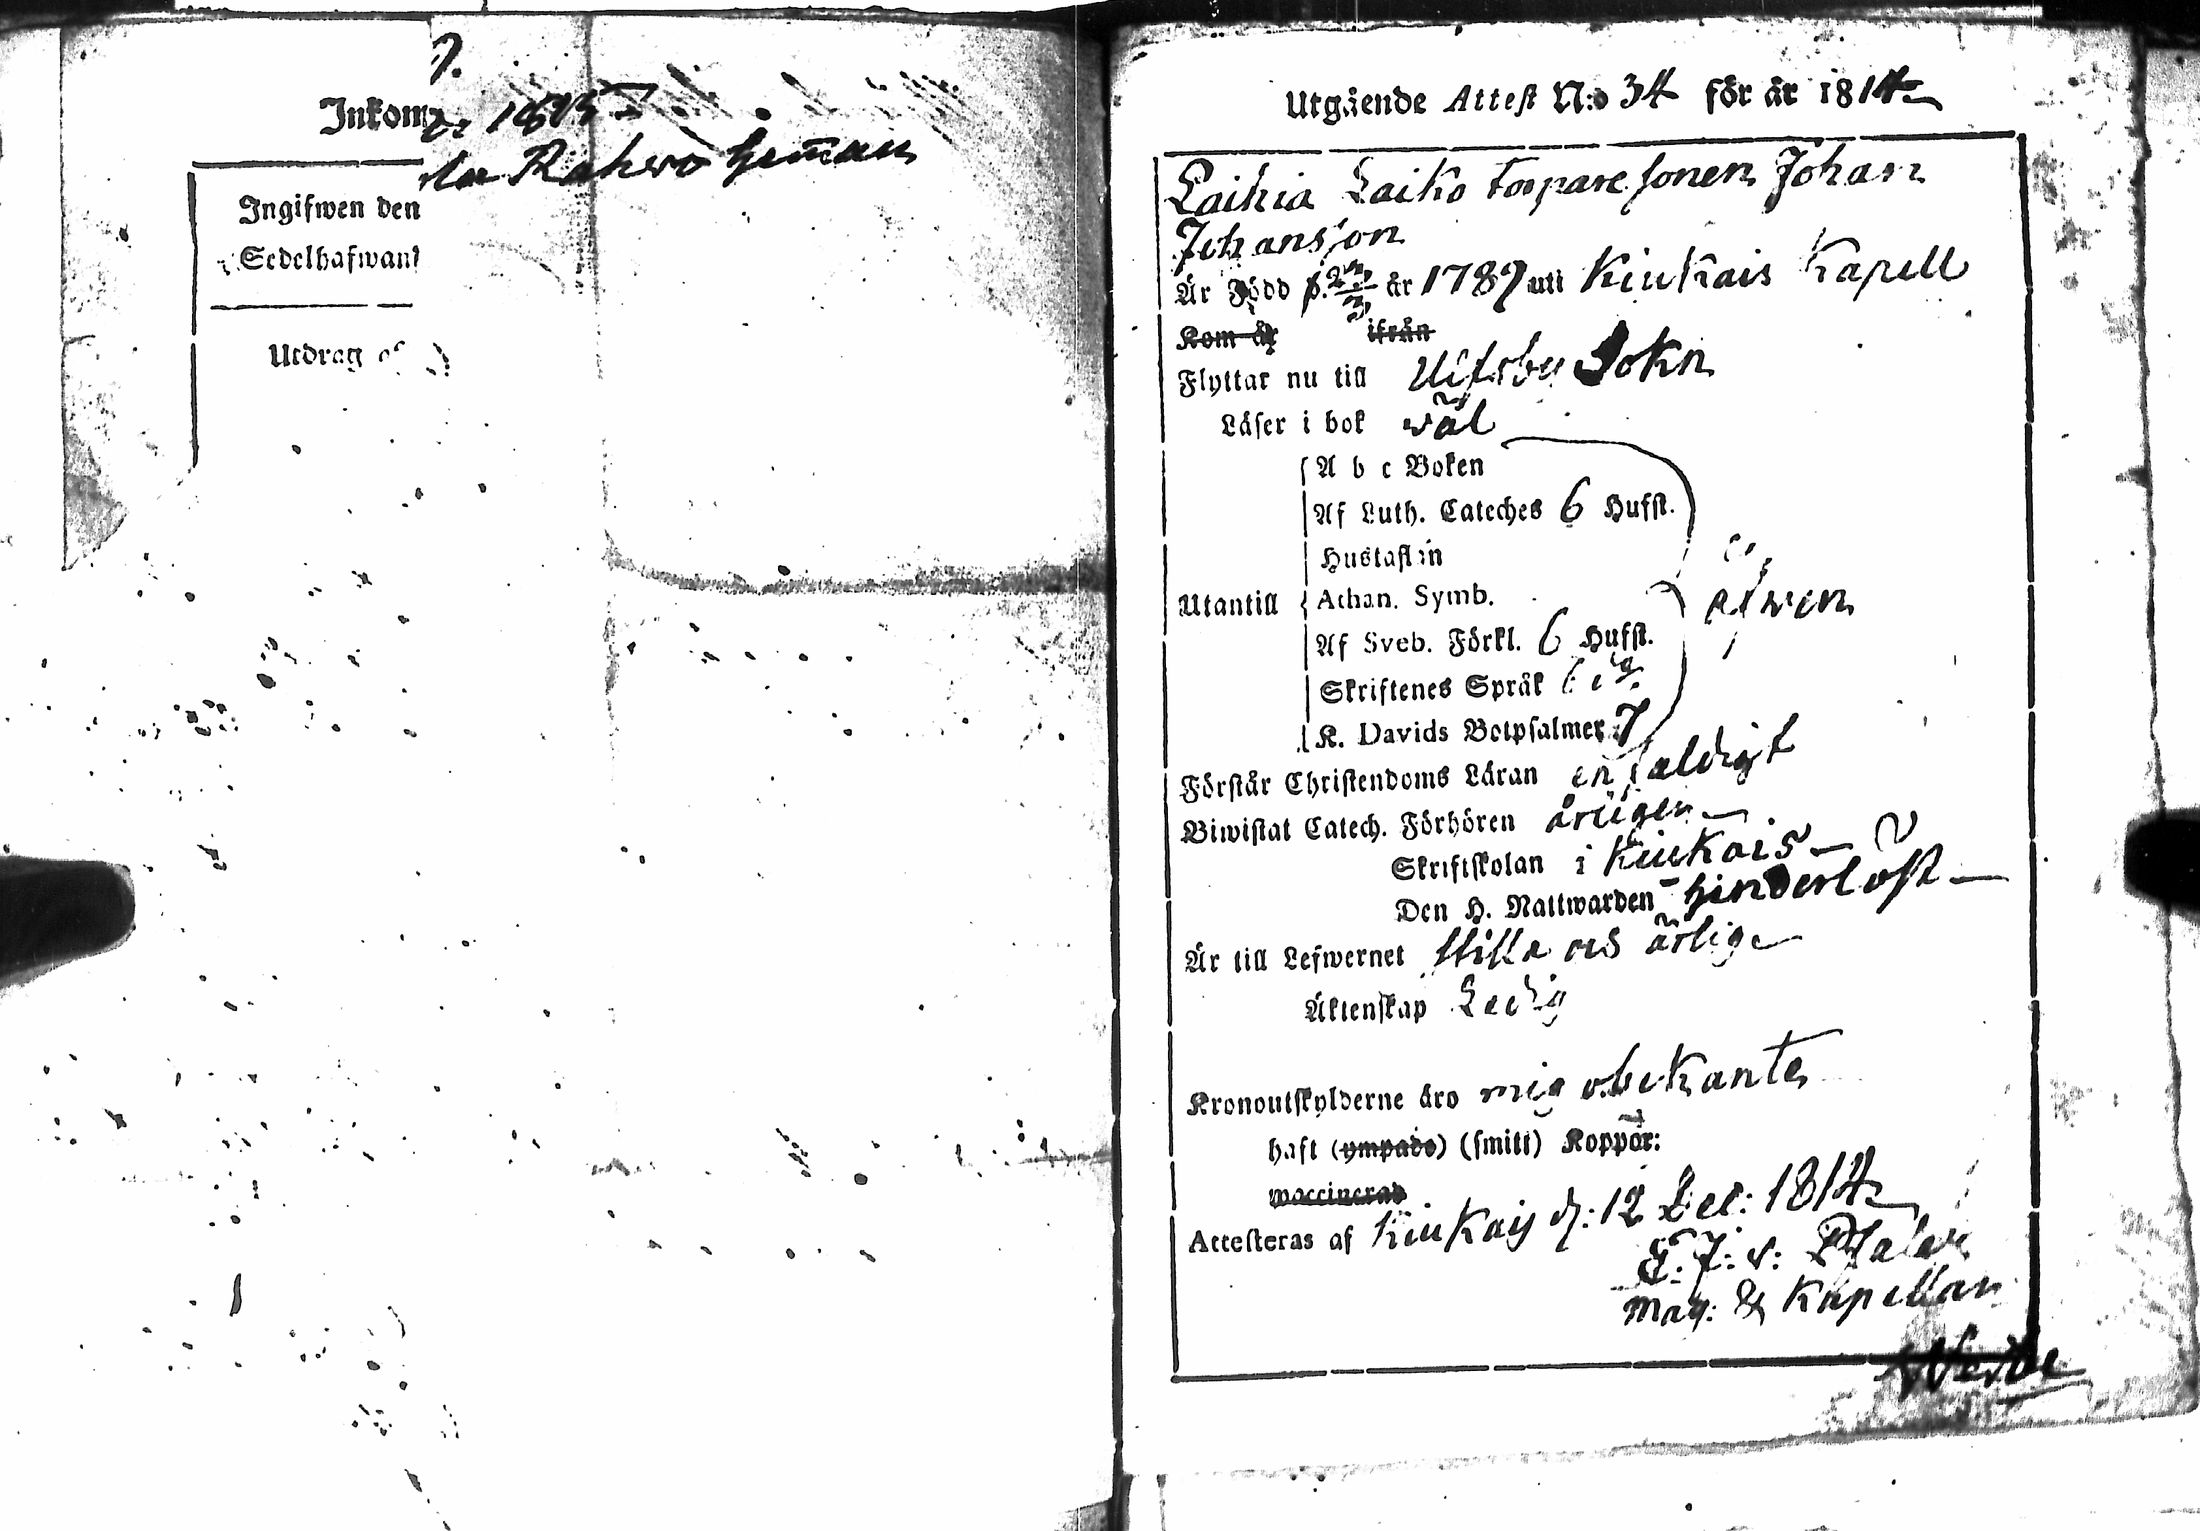 Inkom
1815
Rahwo hemman
Ingifwen den
Sedelhafwan
Utdrag af
Utgående Attest N:o 34 för år 1814
Laihia Laiko torparesonen Johan
Johansson
Är Född d. år 1789 uti Kiukais Kapell
Kom år ifrån
Flyttar nu till Ulfsby Sokn
Läser i bok wäl
A b c Boken
Af Luth. Cateches 6 Hufst.
Hustaflan
Utantill Athan. Symb. äfwen
Af Sveb. Förkl. 6 Hufst.
Skriftenes Språk
K. Davids Botpsalmer 7
Förstår Christendoms Läran enfaldigt
Biwistat Catech. Förhören årligen
Skriftskolan i Kiukais
Den H. Nattwarden hinderlöst
Är till Lefwernet stilla och ärlig
Äktenskap Ledig
Kronoutskylderne äro mig obekante
haft (ympade) (smitt) Koppor:
waccinerad
Attesteras af Kiukais d: 12 Dec: 1814
Mag: & Kapellan